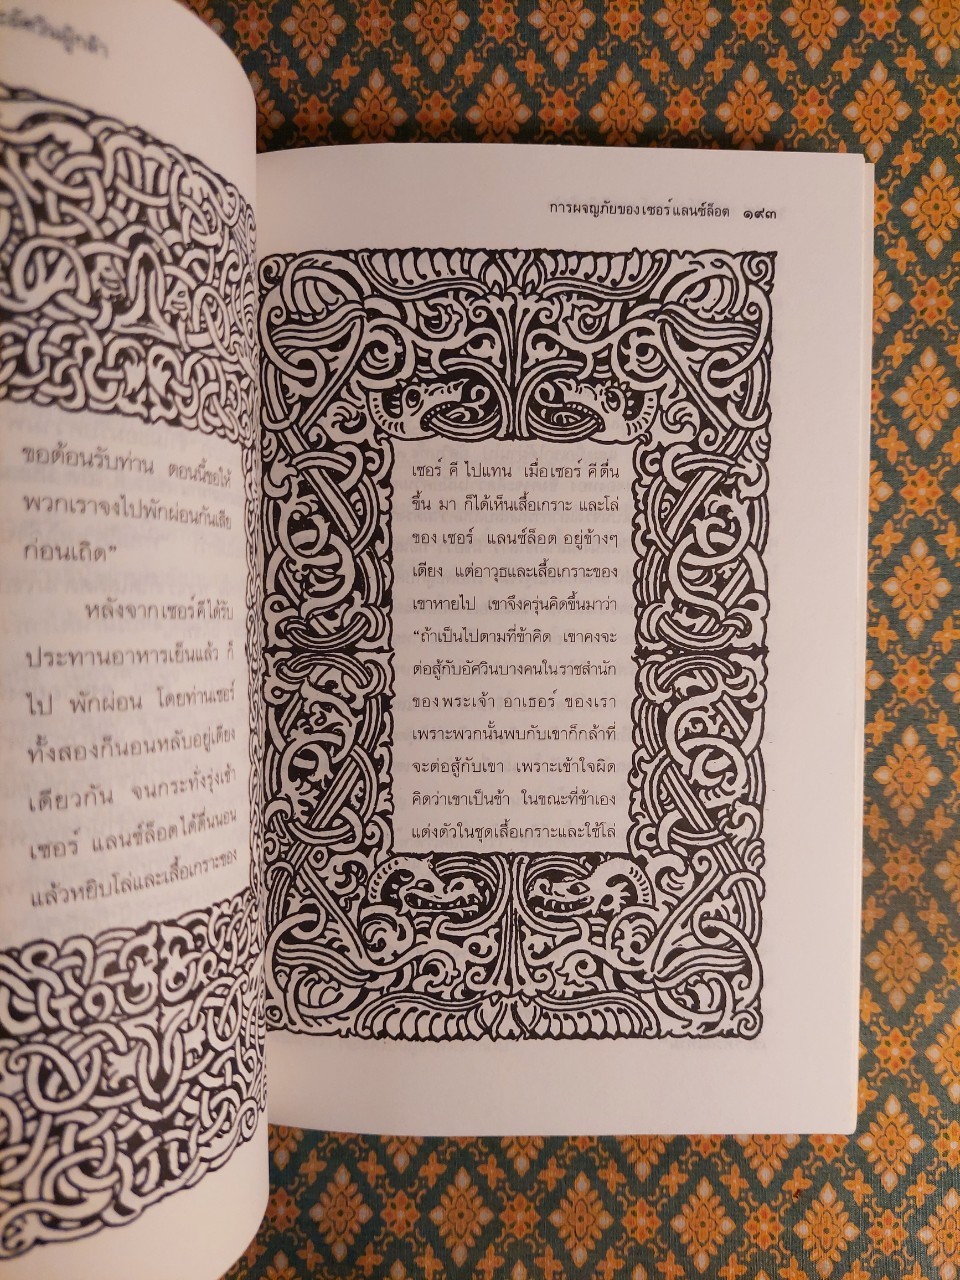 ขอต้อนรับท่าน ตอนนี้ขอให้
พวกเราจงไปพักผ่อนกันเสีย
ก่อนเถิด”
หลังจากเซอร์คีได้รับ
ประทานอาหารเย็นแล้ว ก็
ไป พักผ่อน โดยท่านเซอร์
ทั้งสองก็นอนหลับอยู่เตียง
เดียวกัน จนกระทั่งรุ่งเช้า
เซอร์ แลนซ์ล็อตได้ตื่นนอน
แล้วหยิบโล่และเสื้อเกราะของ
การผจญภัยของเซอร์แลนซ์ล็อต ๑๙๓
เซอร์ คี ไปแทน เมื่อเซอร์ คีตื่น
ขึ้น มา ก็ได้เห็นเสื้อเกราะ และโล่
ของ เซอร์ แลนซ์ล็อต อยู่ข้างๆ
เตียง แต่อาวุธและเสื้อเกราะของ
เขาหายไป เขาจึงครุ่นคิดขึ้นมาว่า
“ถ้าเป็นไปตามที่ข้าคิด เขาคงจะ
ต่อสู้กับอัศวินบางคนในราชสำนัก
ของพระเจ้า อาเธอร์ ของเรา
เพราะพวกนั้นพบกับเขาก็กล้าที่
จะต่อสู้กับเขา เพราะเข้าใจผิด
คิดว่าเขาเป็นข้า ในขณะที่ข้าเอง
แต่งตัวในชุดเสื้อเกราะและใช้โล่